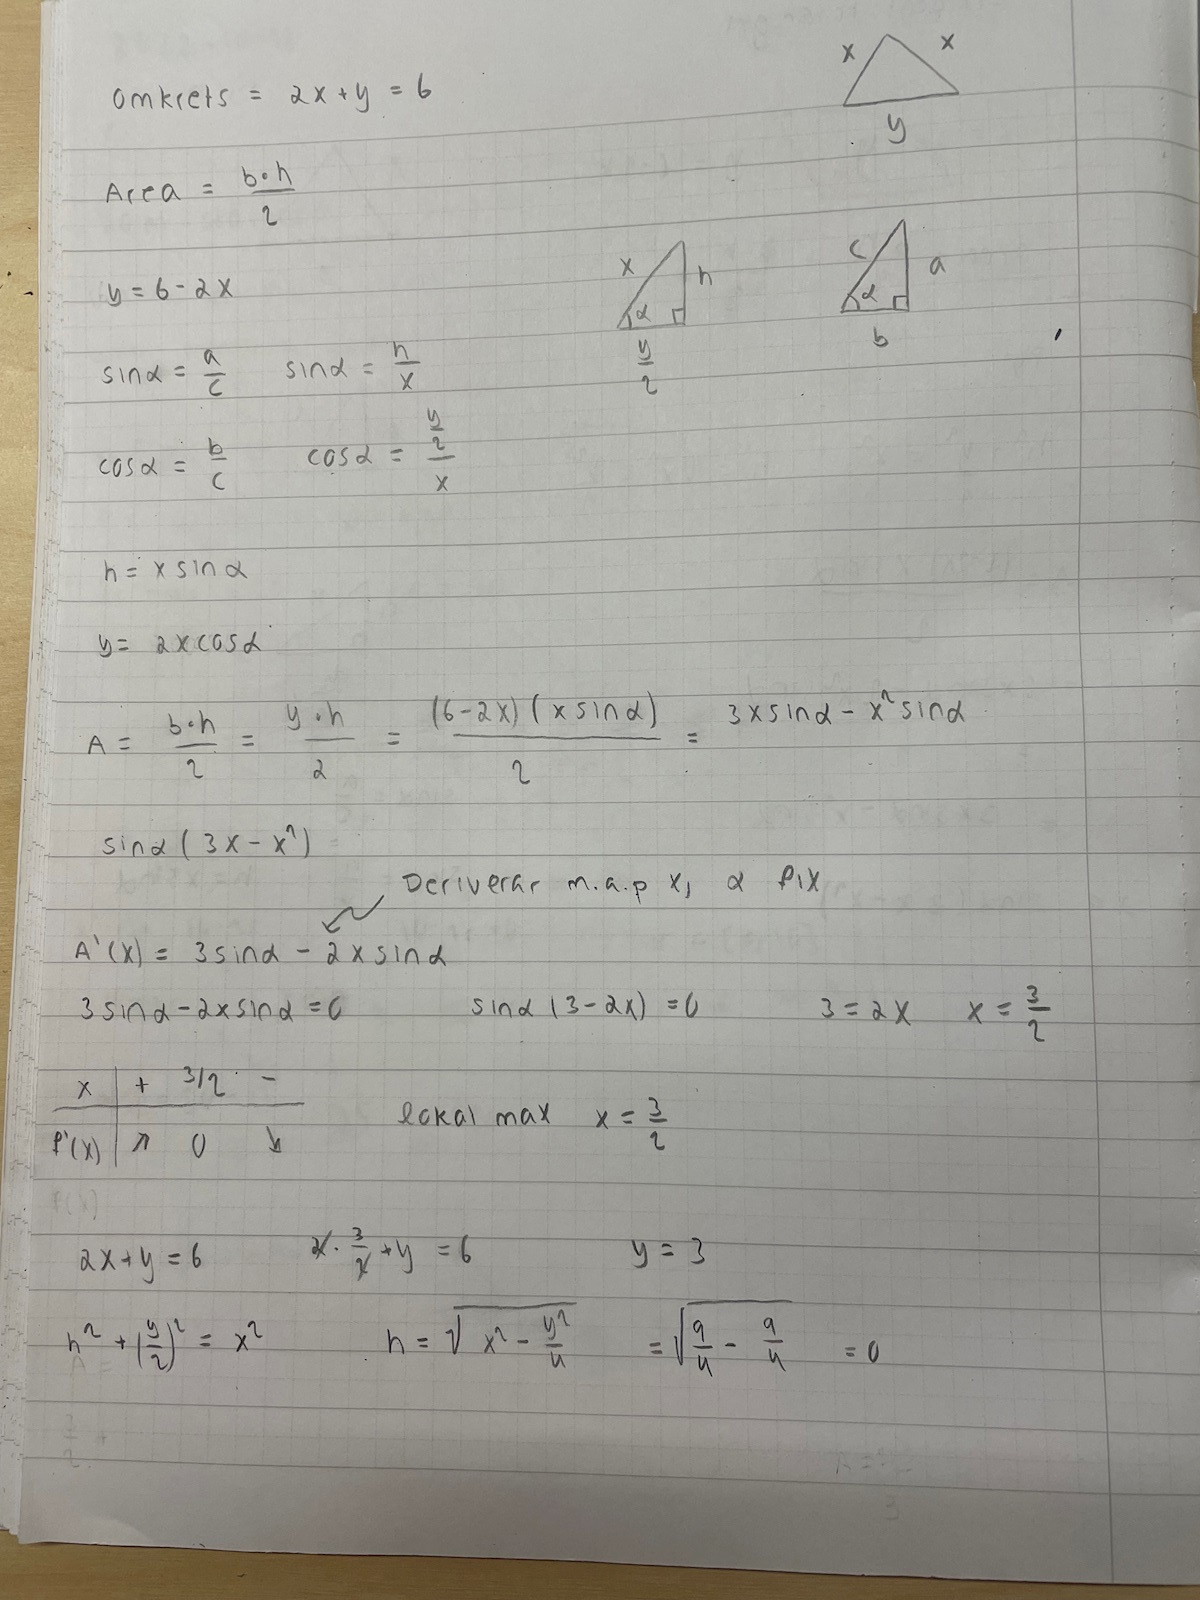 x x
omkrets = 2x+y = 6
y
Area = b·h/2
y = 6-2x
x h α y/2
c a α b
sinα = a/c sinα = h/x
cosα = b/c cosα = (y/2)/x
h = x sinα
y = 2x cosα
A = b·h/2 = y·h/2 = (6-2x)(x sinα)/2 = 3x sinα - x² sinα
sinα (3x - x²)
Deriverar m.a.p x, α fix
A'(x) = 3 sinα - 2x sinα
3 sinα - 2x sinα = 0 sinα (3-2x) = 0 3 = 2x x = 3/2
x | + 3/2 -
f'(x) | ↗ 0 ↘
lokal max x = 3/2
2x+y = 6 2·3/2 + y = 6 y = 3
h² + (y/2)² = x² h = √(x² - y²/4) = √(9/4 - 9/4) = 0